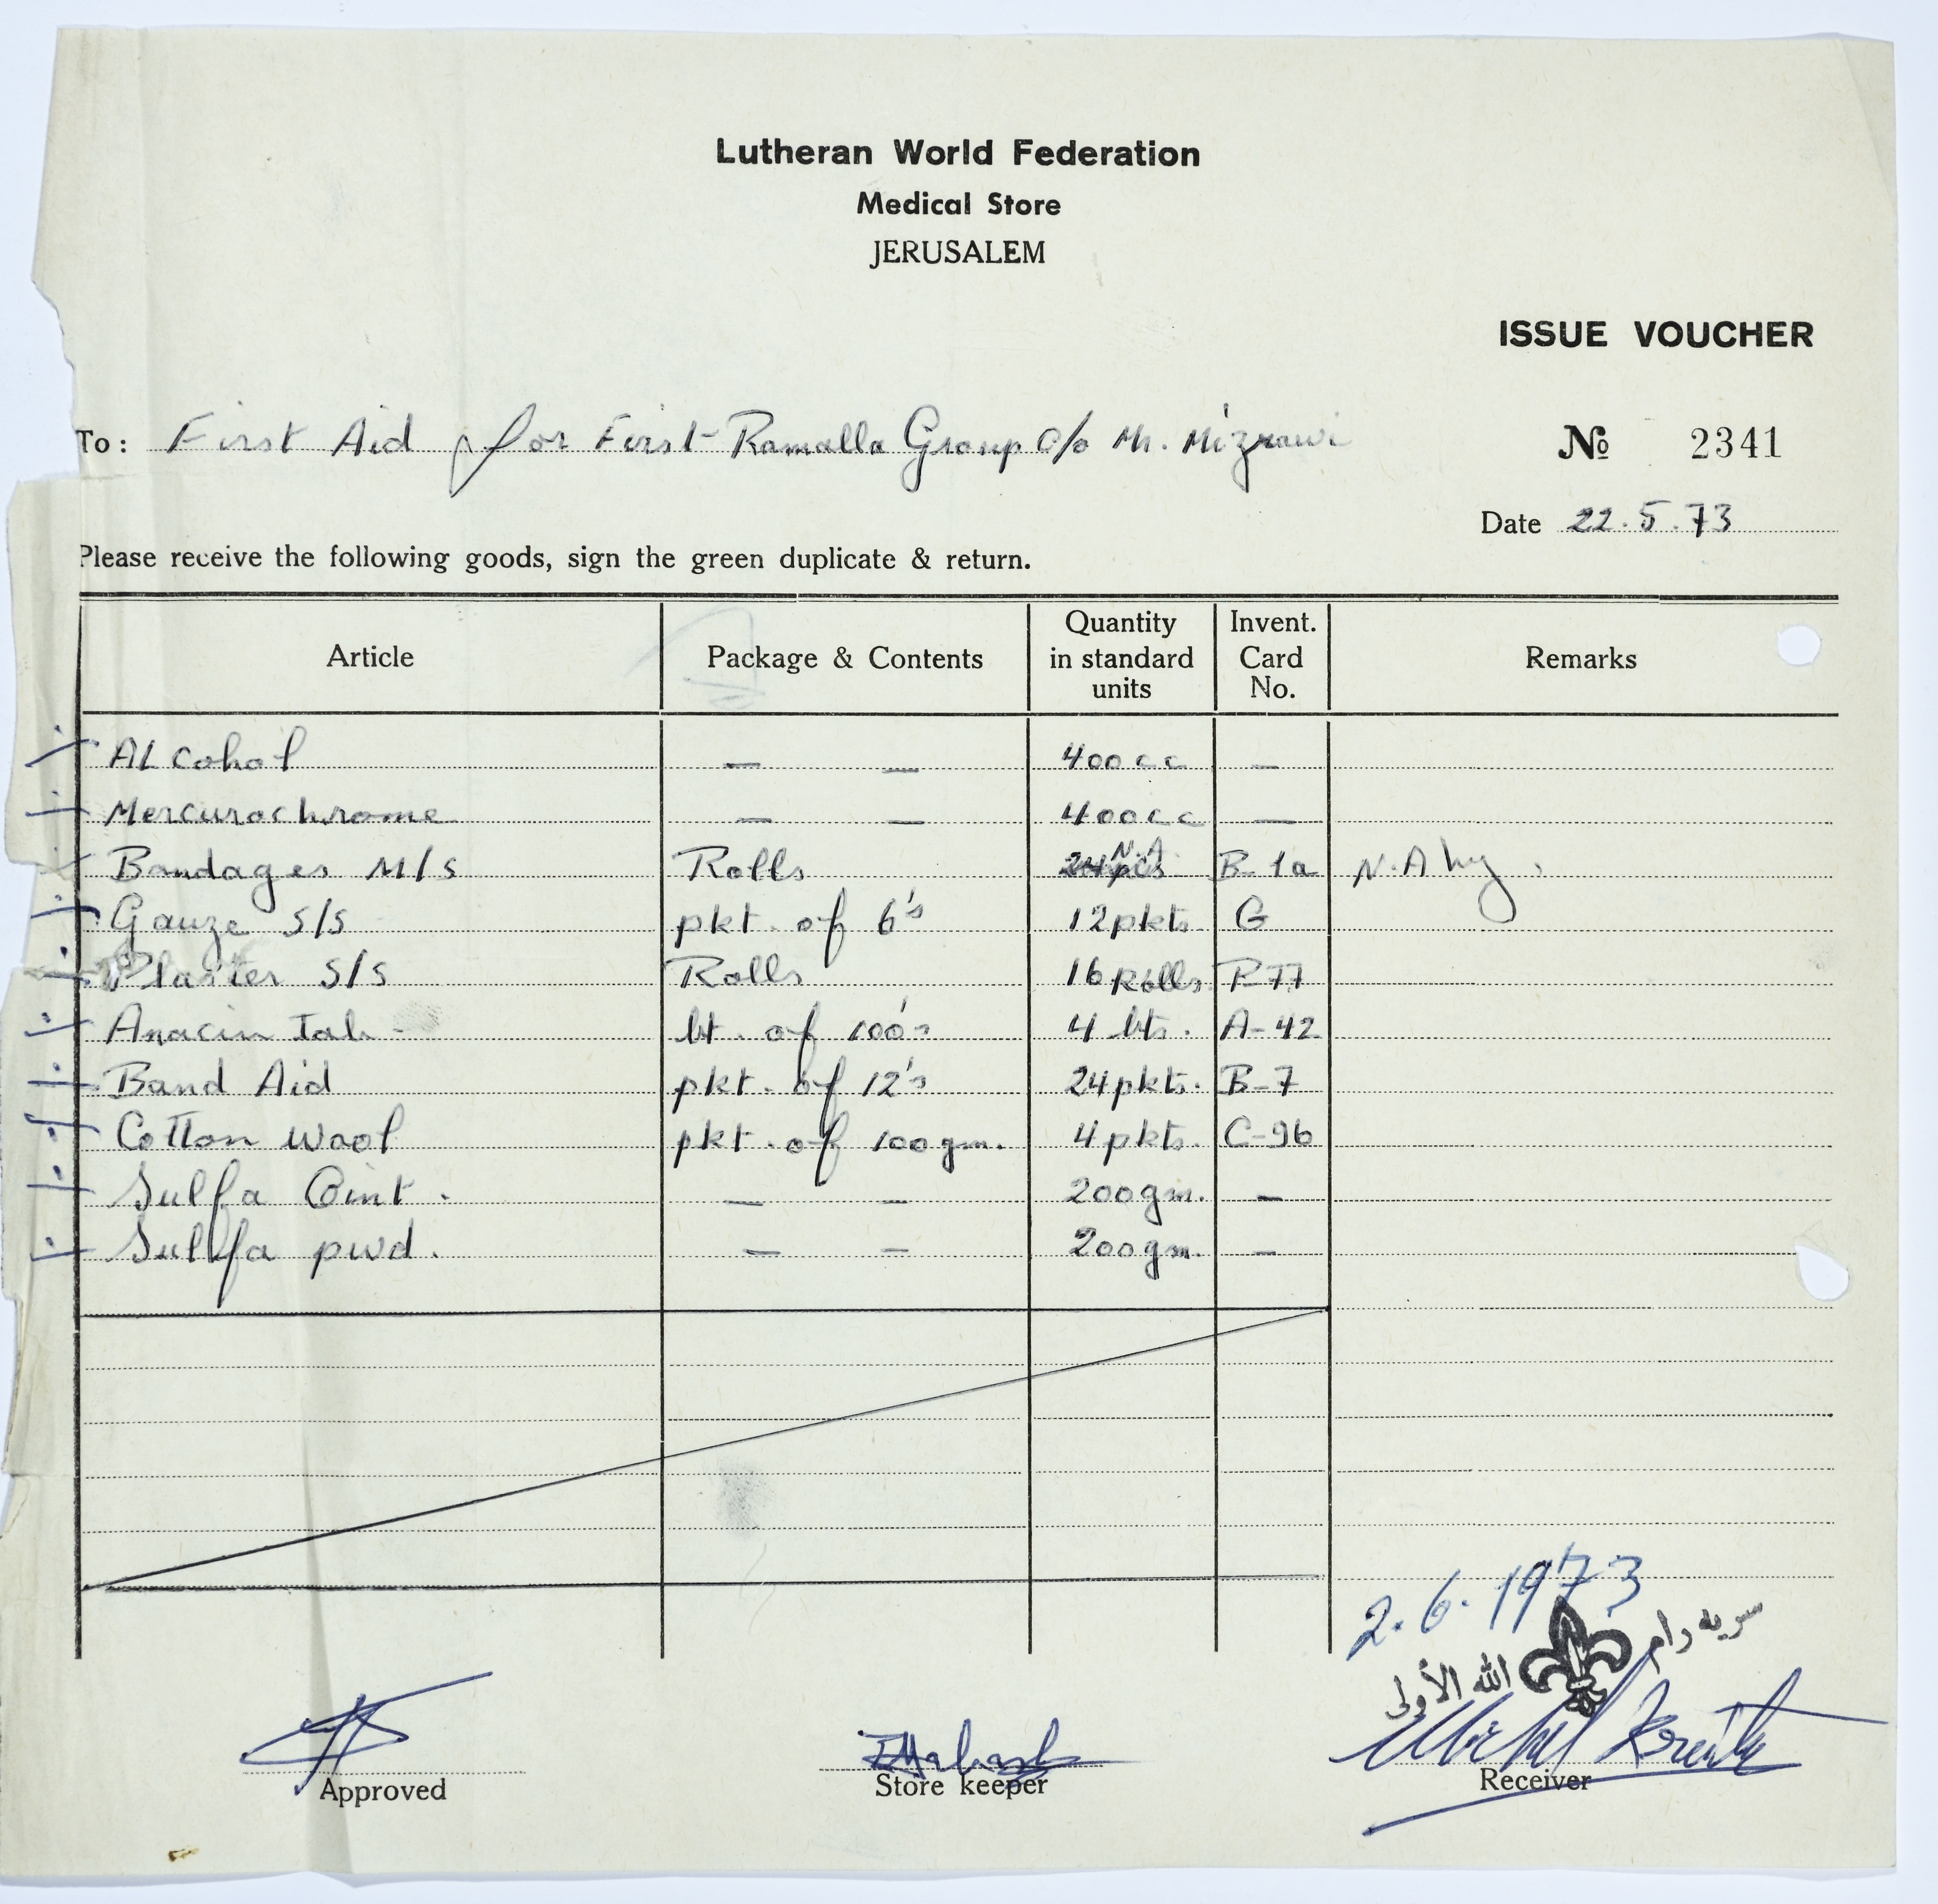 Lutheran World Federation
Medical Store
JERUSALEM
ISSUE VOUCHER
To: First Aid for First Ramalla Group c/o Mr. Mizrawi
№ 2341
Date 22.5.73
Please receive the following goods, sign the green duplicate & return.
Article Package & Contents Quantity in standard units Invent. Card No. Remarks
ALcohol — — 400cc —
Mercurochrome — — 400cc —
Bandages M/S Rolls 24pcs N.A. B-1a N.A
Gauze S/S pkt. of 6's 12pkts. G
Plaster S/S Rolls 16 Rolls P77
Anacin Tab- bt. of 100's 4 bts. A-42
Band Aid pkt. of 12's 24pkts. B-7
Cotton Wool pkt. of 100gm. 4pkts. C-96
Sulfa Oint. — — 200gm. —
Sulfa pwd. — — 200gm. —
2.6.1973
سريه رام الله الأولى
Approved Store keeper Receiver